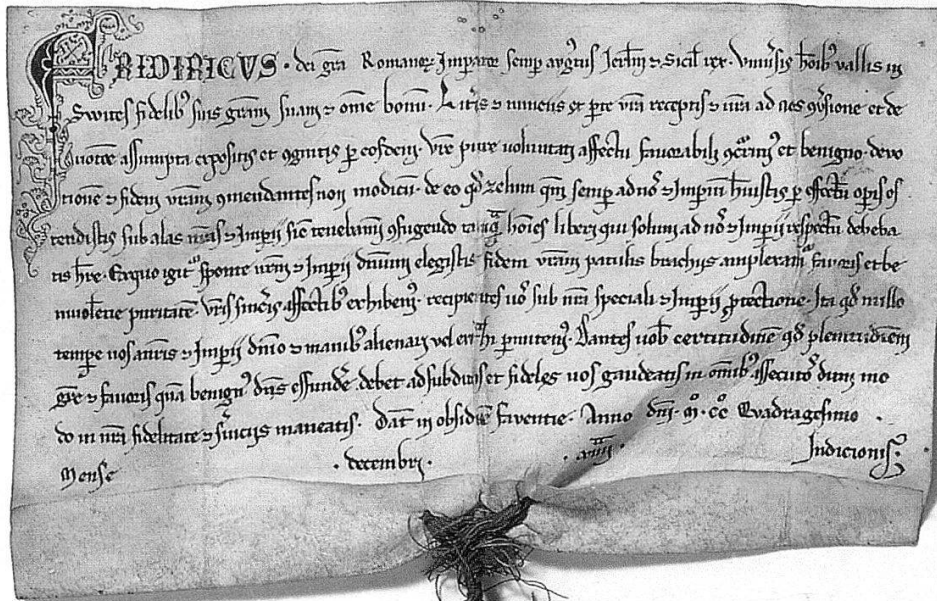 FRIDIRICVS · dei grã Romanoꝝ Imparatoꝛ semp augꝰtus Jerlm̃ ⁊ Sicil rex. Vniũsis hõibꝰ vallis in
Swites fidelibꝰ suis grãm suam ⁊ om̃e bonũ. Litĩs ⁊ nunciis ex pte vrã receptis ⁊ vrã ad nos ꝯũsione et de
uotõe assumpta expositis et ꝯgnitis ꝑ eosdem. Vrẽ pure voluntati affectu fauorabili ꝯcurim̃ et benigno. deuo
tionẽ ⁊ fidem vrãm ꝯmendantes non modicũ. de eo qd̃ zelum quẽ semp ad nõs ⁊ Imperiũ huĩstis ꝑ effectũ oꝑis os
tendistis sub alas nrãs ⁊ Imperii sic̃ tenebamĩ ꝯfugendo tanq̃ hoĩes liberi qui solum ad nõs ⁊ Imperii respectũ debeba
tis hr̃e. Ex quo igit̃ sponte nrm̃ ⁊ Imperii dn̄ium elegistis fidem vrãm patulis brachijs amplexam̃ fauoris et be
niuolẽtie puritatẽ. vrĩs sincĩs affectibꝰ exhibemꝰ. recipientes uõs sub nrã speciali ⁊ Imperii ꝓtectione. Ita qd̃ nullo
tempe uos a nrĩs ⁊ Imperii dn̄io ⁊ manibꝰ alienari vel ext̃hi ꝑmittemꝰ. Dantes uob̃ certitudinẽ qd̃ plenitudinem
grẽ ⁊ fauoris quã benignꝰ dn̄s effundẽ debet ad subditos et fideles uos gaudeatis in omĩbꝰ assecutõs dum mo
do in nrã fidelitate ⁊ sũicijs maneatis. Dat̃ in obsidiõe fauentie. Anno dn̄i. M̊. CC̊ Quadragesimo.
Mense · decembri · · xiiii · Indicionis.